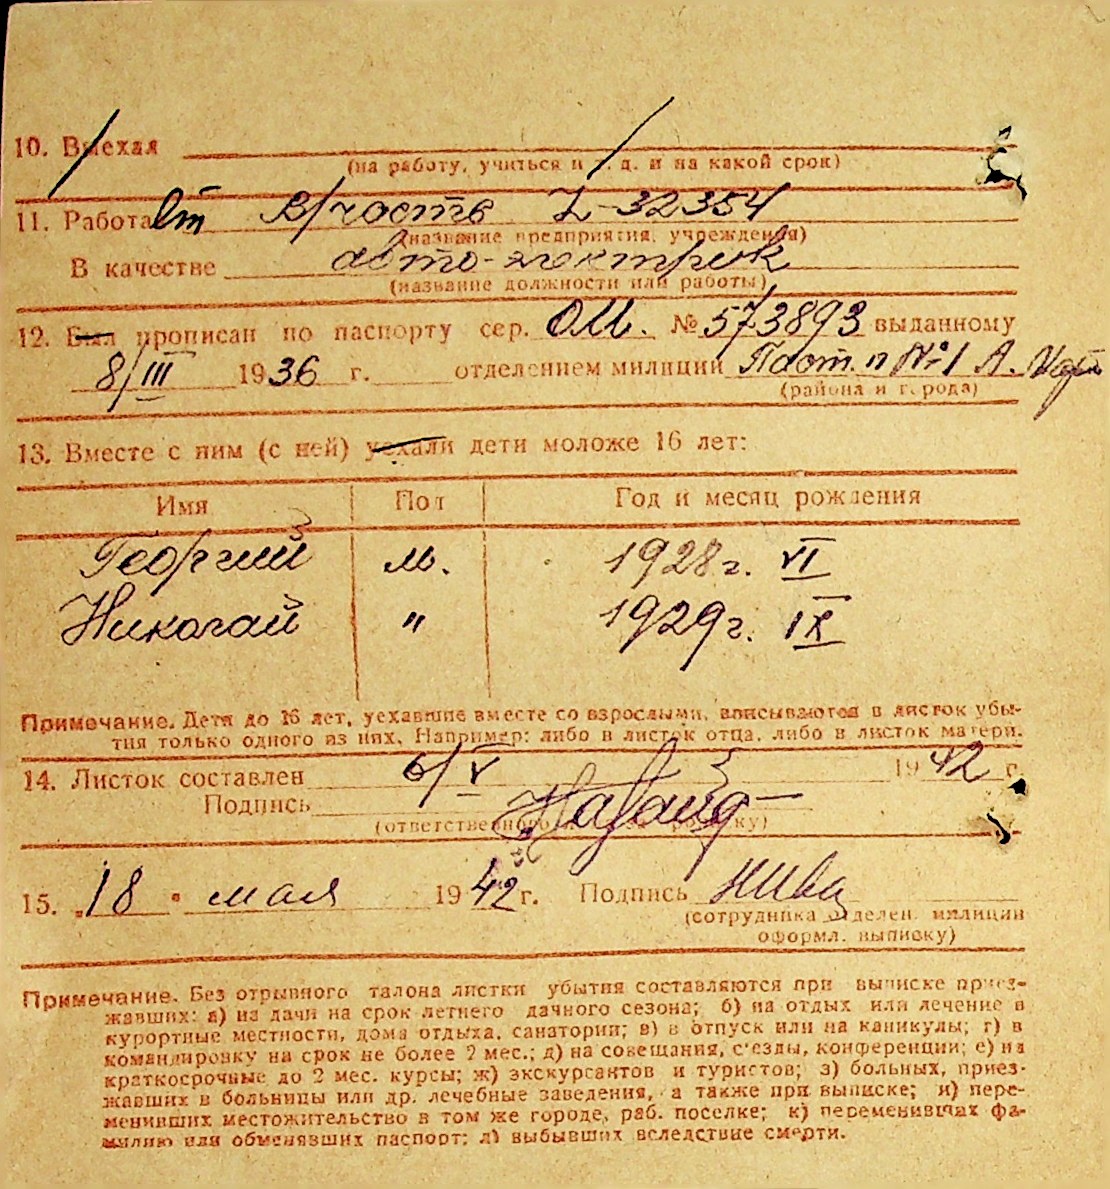 10. Выехал
(на работу, учиться и т. д. и на какой срок)
11. Работает в/часть Z-32354
(название предприятия, учреждения)
В качестве авто-электрик
(название должности или работы)
12. Был прописан по паспорту сер. ОМ. № 573893 выданному
8/III 1936 г. отделением милиции Пасп. п № 1 А.
(района и города)
13. Вместе с ним (с ней) уехали дети моложе 16 лет:
Имя Пол Год и месяц рождения
Георгий м. 1928 г. VI
Николай " 1929 г. IX
Примечание. Дети до 16 лет, уехавшие вместе со взрослыми, вписываются в листок убы-
тия только одного из них. Например: либо в листок отца, либо в листок матери.
14. Листок составлен 6/V 1942 г.
Подпись
(ответственного за прописку)
15. „18 " мая 1942 г. Подпись
(сотрудника отделен. милиции
оформл. выписку)
Примечание. Без отрывного талона листки убытия составляются при выписке приез-
жавших: а) на дачи на срок летнего дачного сезона; б) на отдых или лечение в
курортные местности, дома отдыха, санатории; в) в отпуск или на каникулы; г) в
командировку на срок не более 2 мес.; д) на совещания, с'езды, конференции; е) на
краткосрочные до 2 мес. курсы; ж) экскурсантов и туристов; з) больных, приез-
жавших в больницы или др. лечебные заведения, а также при выписке; и) пере-
менивших местожительство в том же городе, раб. поселке; к) переменивших фа-
милию или обменявших паспорт; л) выбывших вследствие смерти.